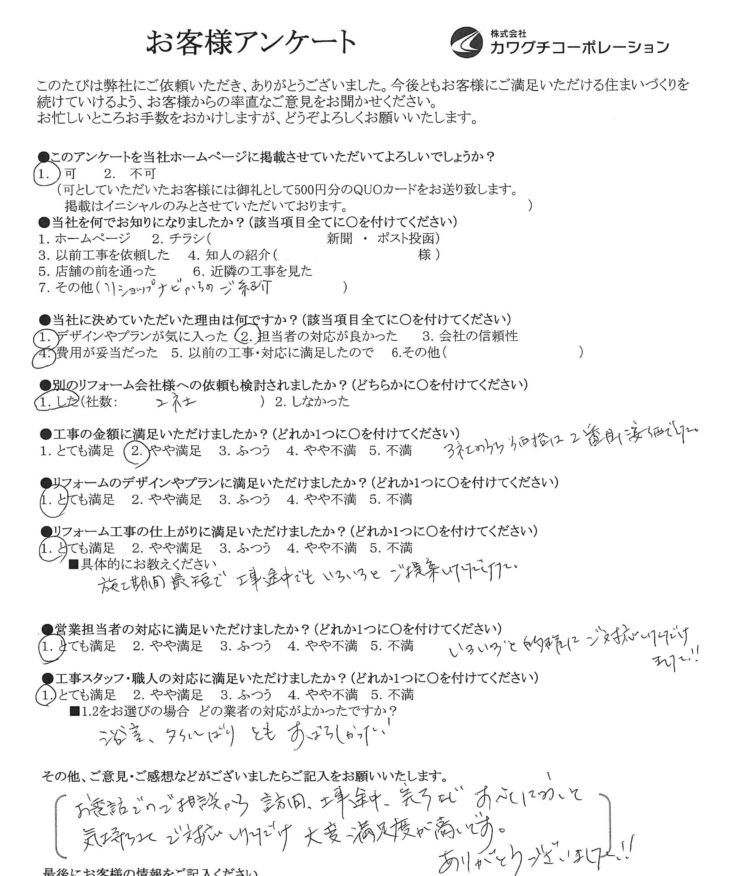 お客様アンケート
株式会社
カワグチコーポレーション
このたびは弊社にご依頼いただき、ありがとうございました。今後ともお客様にご満足いただける住まいづくりを
続けていけるよう、お客様からの率直なご意見をお聞かせください。
お忙しいところお手数をおかけしますが、どうぞよろしくお願いいたします。
●このアンケートを当社ホームページに掲載させていただいてよろしいでしょうか？
1. 可　2. 不可
(可としていただいたお客様には御礼として500円分のQUOカードをお送り致します。
掲載はイニシャルのみとさせていただいております。 )
●当社を何でお知りになりましたか？(該当項目全てに○を付けてください)
1. ホームページ　2. チラシ(　新聞 ・ ポスト投函)
3. 以前工事を依頼した　4. 知人の紹介(　様 )
5. 店舗の前を通った　6. 近隣の工事を見た
7. その他(リショップナビからのご紹介 )
●当社に決めていただいた理由は何ですか？(該当項目全てに○を付けてください)
1. デザインやプランが気に入った　2. 担当者の対応が良かった　3. 会社の信頼性
4. 費用が妥当だった　5. 以前の工事・対応に満足したので　6.その他(　)
●別のリフォーム会社様への依頼も検討されましたか？(どちらかに○を付けてください)
1. した(社数: 2社 )　2. しなかった
●工事の金額に満足いただけましたか？(どれか1つに○を付けてください)
1. とても満足　2. やや満足　3. ふつう　4. やや不満　5. 不満　3社のうち価格は2番目に安価でした。
●リフォームのデザインやプランに満足いただけましたか？(どれか1つに○を付けてください)
1. とても満足　2. やや満足　3. ふつう　4. やや不満　5. 不満
●リフォーム工事の仕上がりに満足いただけましたか？(どれか1つに○を付けてください)
1. とても満足　2. やや満足　3. ふつう　4. やや不満　5. 不満
■具体的にお教えください
施工期間最短で工事途中でもいろいろとご提案いただけました。
●営業担当者の対応に満足いただけましたか？(どれか1つに○を付けてください)
1. とても満足　2. やや満足　3. ふつう　4. やや不満　5. 不満　いろいろと的確にご対応いただけ
ました!!
●工事スタッフ・職人の対応に満足いただけましたか？(どれか1つに○を付けてください)
1. とても満足　2. やや満足　3. ふつう　4. やや不満　5. 不満
■1.2をお選びの場合 どの業者の対応がよかったですか？
浴室、タイルばりともすばらしかった!
その他、ご意見・ご感想などがございましたらご記入をお願いいたします。
お電話でのご相談から訪問、工事途中、完了などすべてにおいて
気持ちよくご対応いただけ大変満足度が高いです。
ありがとうございました!!
最後にお客様の情報をご記入ください